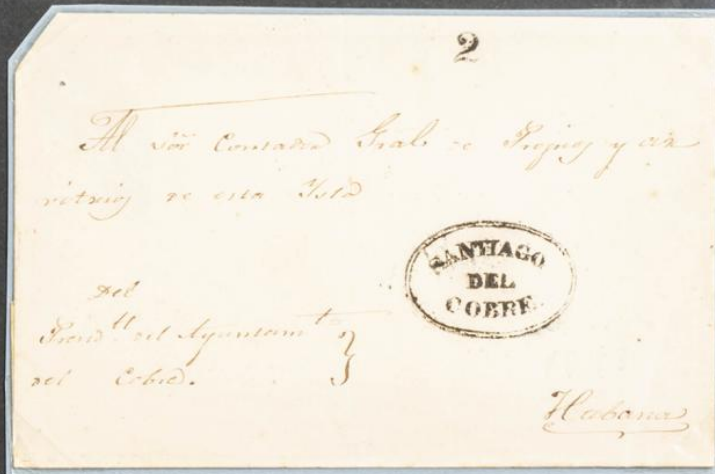 2
Al Sôr Contador Gral de Propios y ar
vitrios de esta Ysla
SANTIAGO
DEL
COBRE.
Del
Presid.te del Ayuntam.to
del Cobre.
Habana